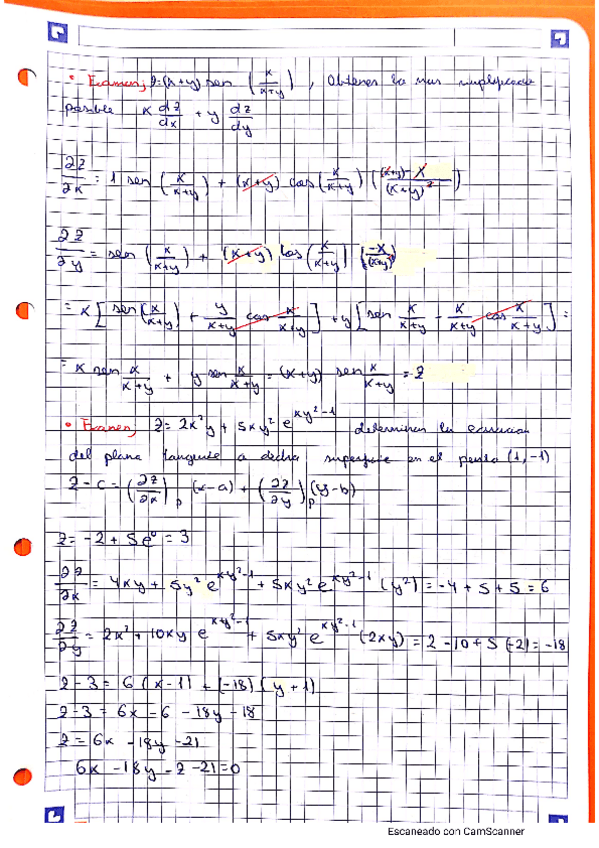 • Examen; z=(x+y) sen (x/(x+y)), Obtener lo mas simplificado
posible x dz/dx + y dz/dy
∂z/∂x = 1 sen (x/(x+y)) + (x+y) cos (x/(x+y)) (((x+y)-x)/(x+y)²)
∂z/∂y = sen (x/(x+y)) + (x+y) cos (x/(x+y)) (-x/(x+y)²)
= x [sen (x/(x+y)) + y/(x+y) cos x/(x+y)] + y [sen x/(x+y) - x/(x+y) cos x/(x+y)] =
= x sen x/(x+y) + y sen x/(x+y) = (x+y) sen x/(x+y) = z
• Examen; z= 2x²y + 5xy² e^(xy²-1) determinar la ecuacion
del plano tangente a dicha superficie en el punto (1,-1)
z-c = (∂z/∂x)p (x-a) + (∂z/∂y)p (y-b)
z= -2 + 5e⁰ = 3
∂z/∂x = 4xy + 5y² e^(xy²-1) + 5xy² e^(xy²-1) (y²) = -4 + 5 + 5 = 6
∂z/∂y = 2x² + 10xy e^(xy²-1) + 5xy² e^(xy²-1) (-2xy) = 2 - 10 + 5 (-2) = -18
z-3 = 6 (x-1) + (-18) (y+1)
z-3 = 6x - 6 - 18y - 18
z = 6x - 18y - 21
6x - 18y - z - 21 = 0
Escaneado con CamScanner